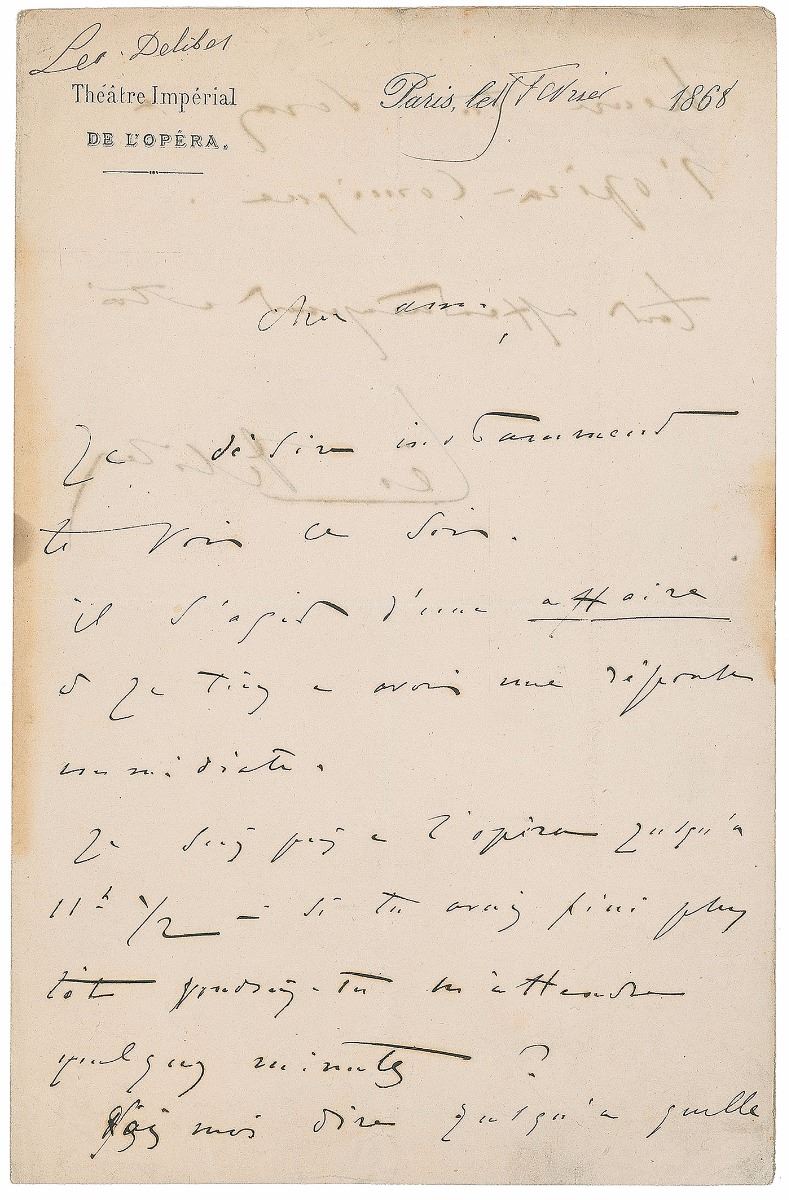 Leo Delibes
Théâtre Impérial
DE L'OPÉRA.
Paris, le Fevrier 1868
Cher ami,
Je désire instamment
te voir ce soir.
il s'agit d'une affaire
et je tiens a avoir une réponse
immédiate.
Je suis pris a l'opéra jusqu'a
11h 1/2 — si tu avais fini plus
tôt voudrais-tu m'attendre
quelques minutes ?
Fais moi dire jusqu'a quelle